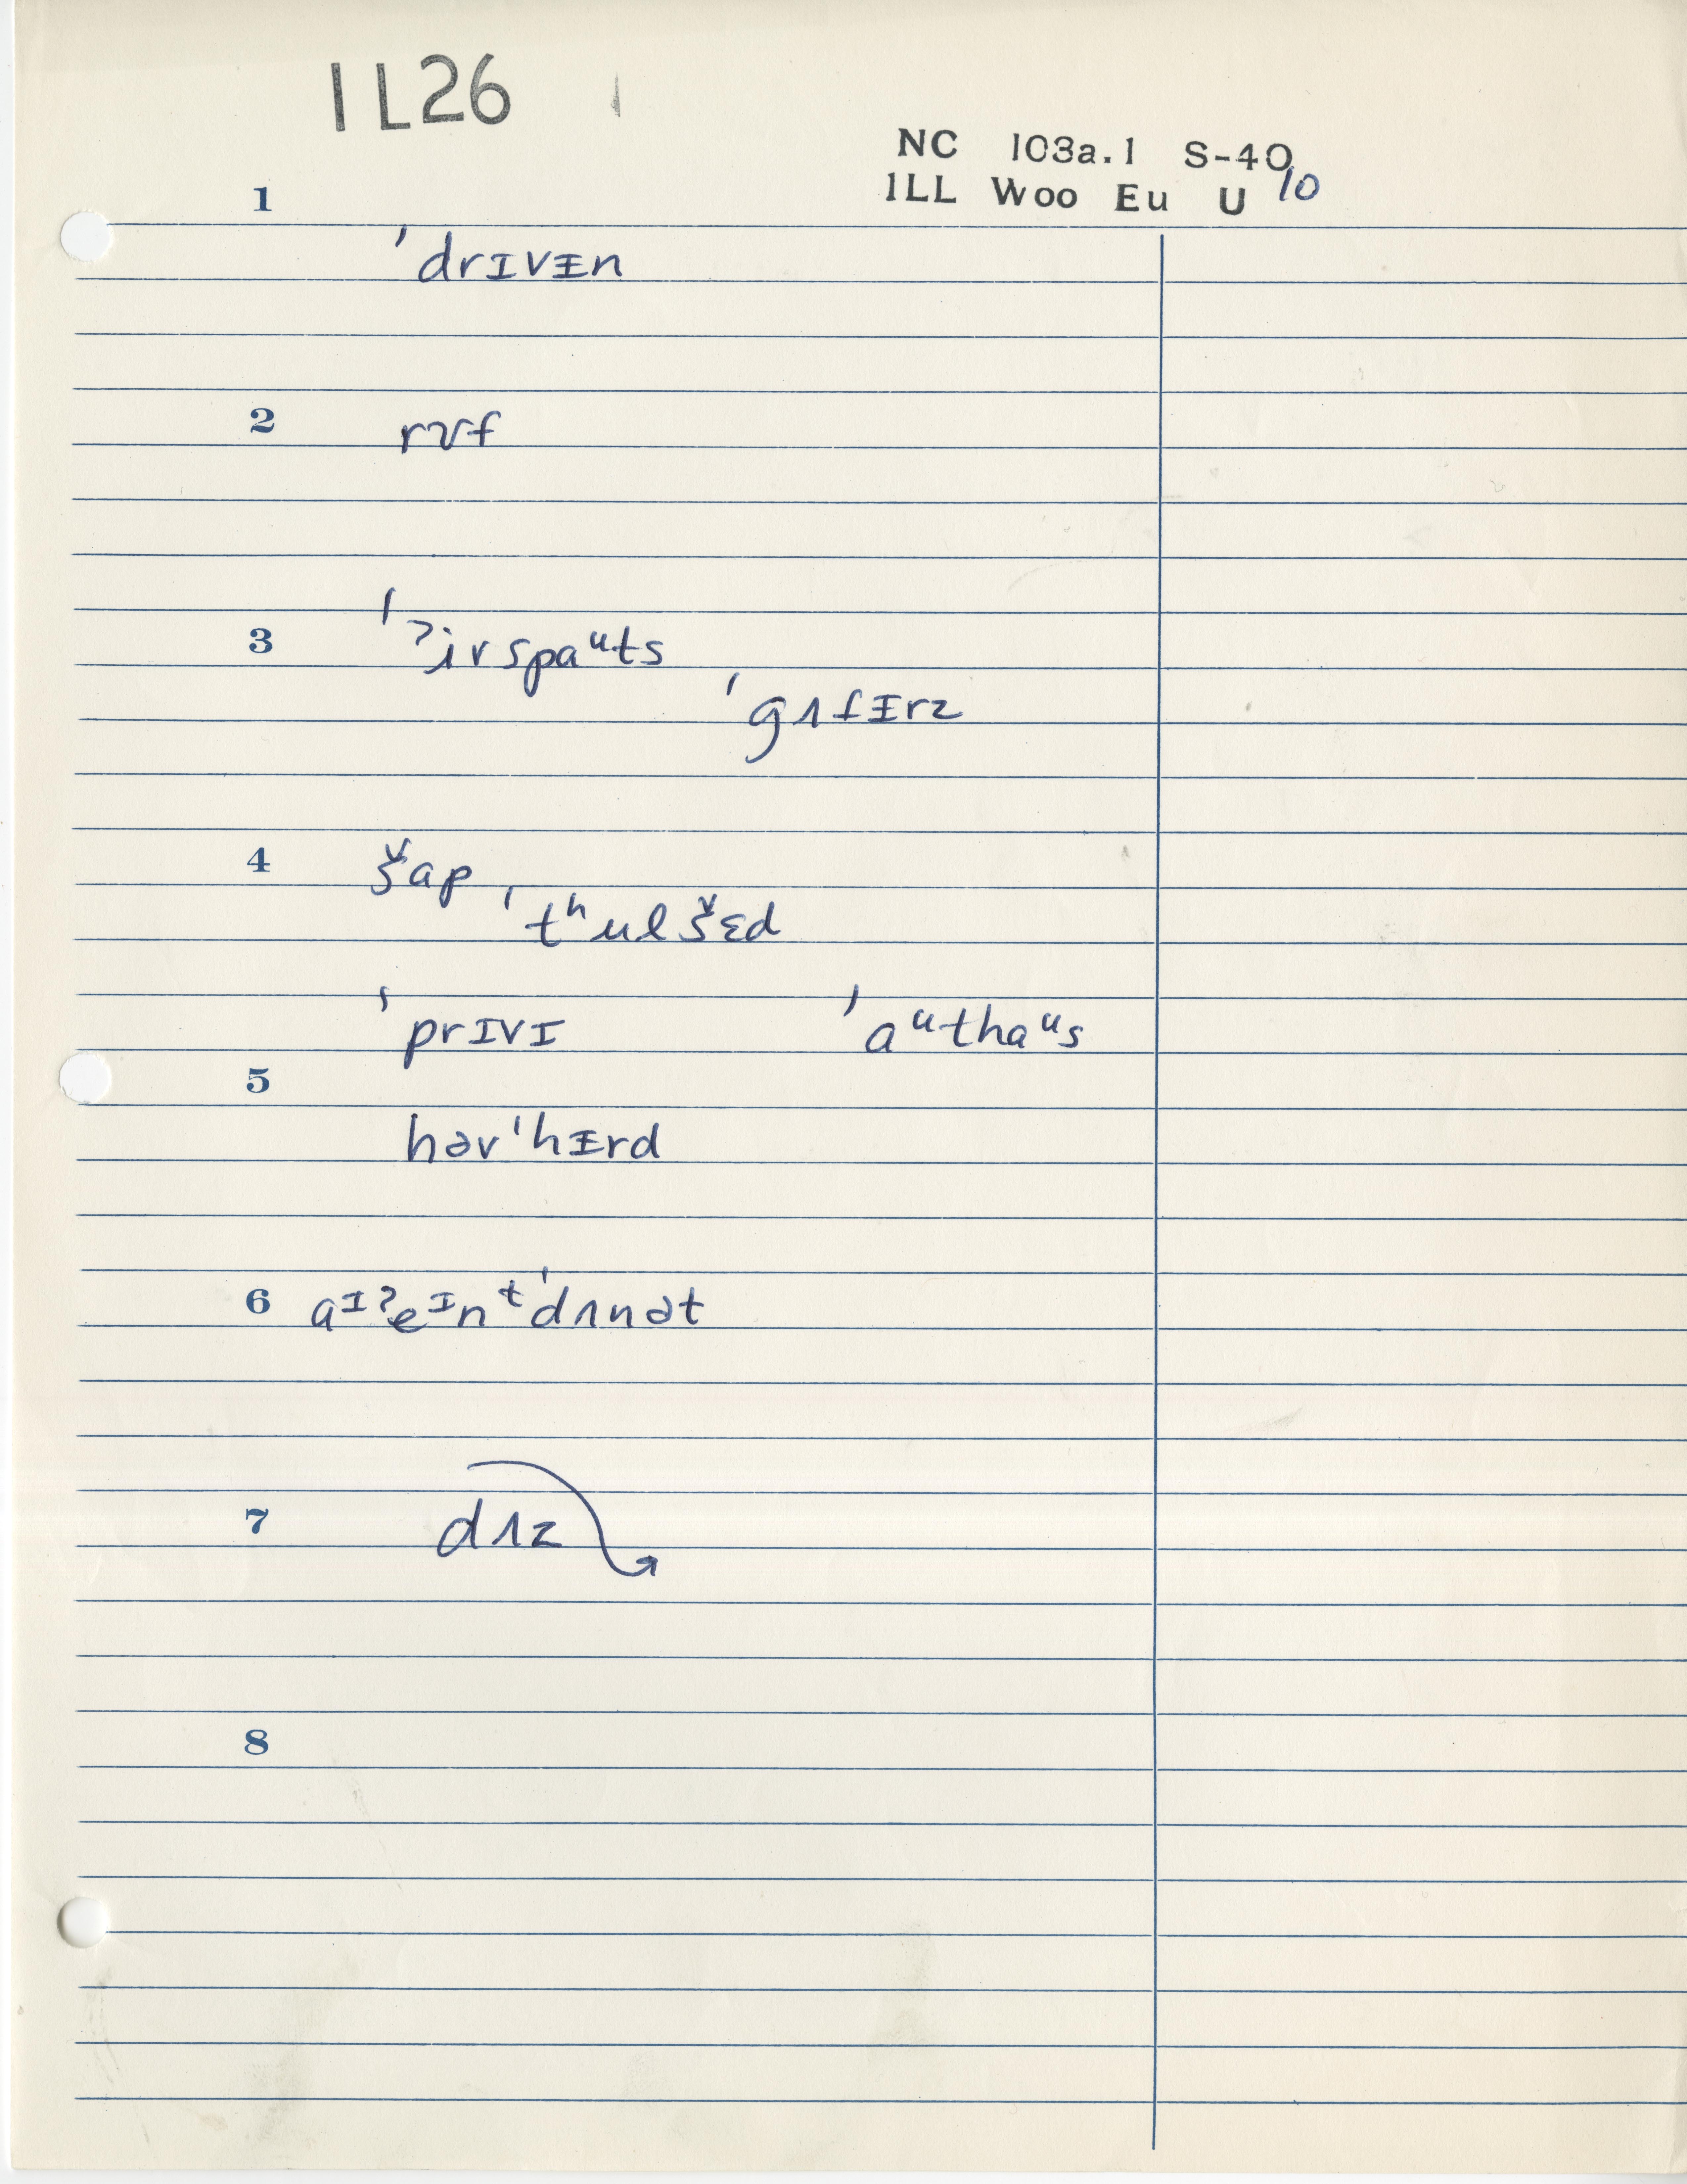 1L26
NC 103a.1 S-40
1LL Woo Eu U 10
1
ˈdrɪvᵻn
2 rʊf
3 ˈʔirspaᵘts
ˈgʌfᵻrz
4 šap ˈtʰulšɛd
ˈprɪvɪ ˈaᵘthaᵘs
5
həvˈhᵻrd
6 aᶦʔeᶦnᵗˈdʌnət
7 dʌz
8